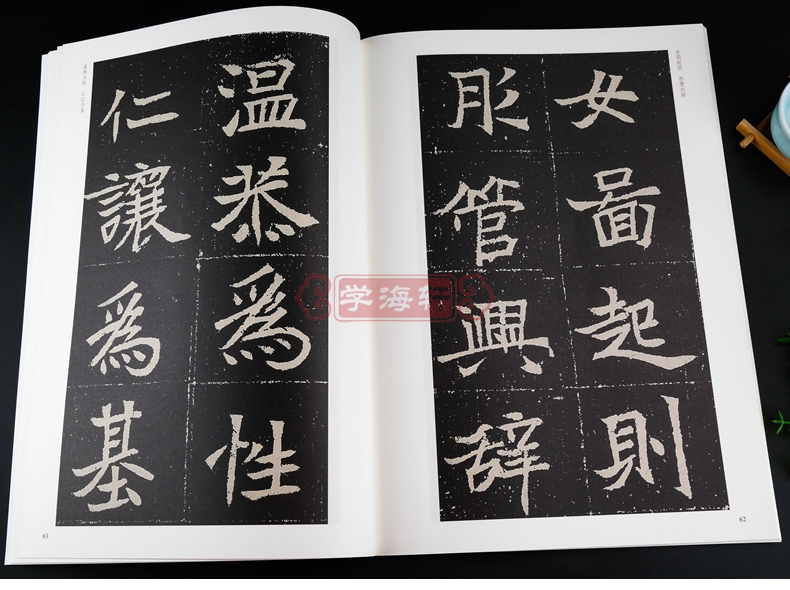 女啚起則
肜管興辞
温恭爲性
仁讓爲基
62
63
学海轩